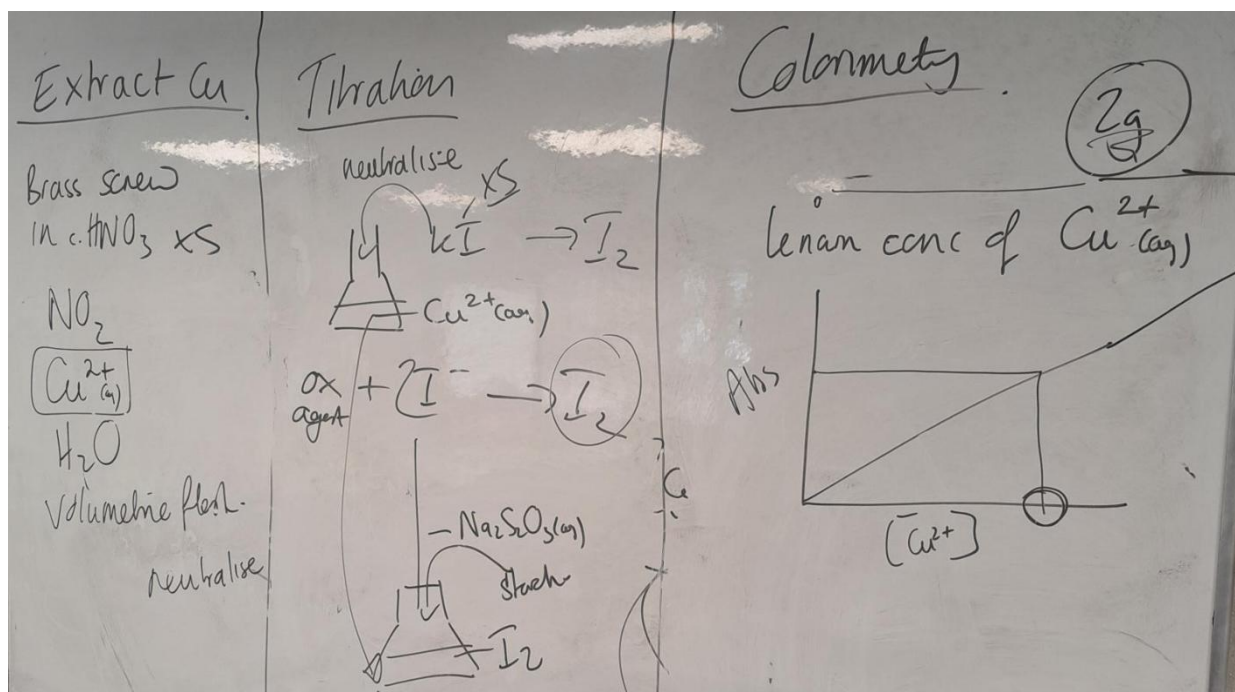 Extract Cu
Brass screw
in c.HNO₃ xs
NO₂
Cu²⁺(aq)
H₂O
Volumetric flask.
neutralise
Titration
neutralise
xs
KI → I₂
Cu²⁺(aq)
ox agent + 2I⁻ → I₂
Na₂S₂O₃(aq)
Starch
I₂
Colorimetry
conc of Cu²⁺(aq)
Abs
[Cu²⁺]